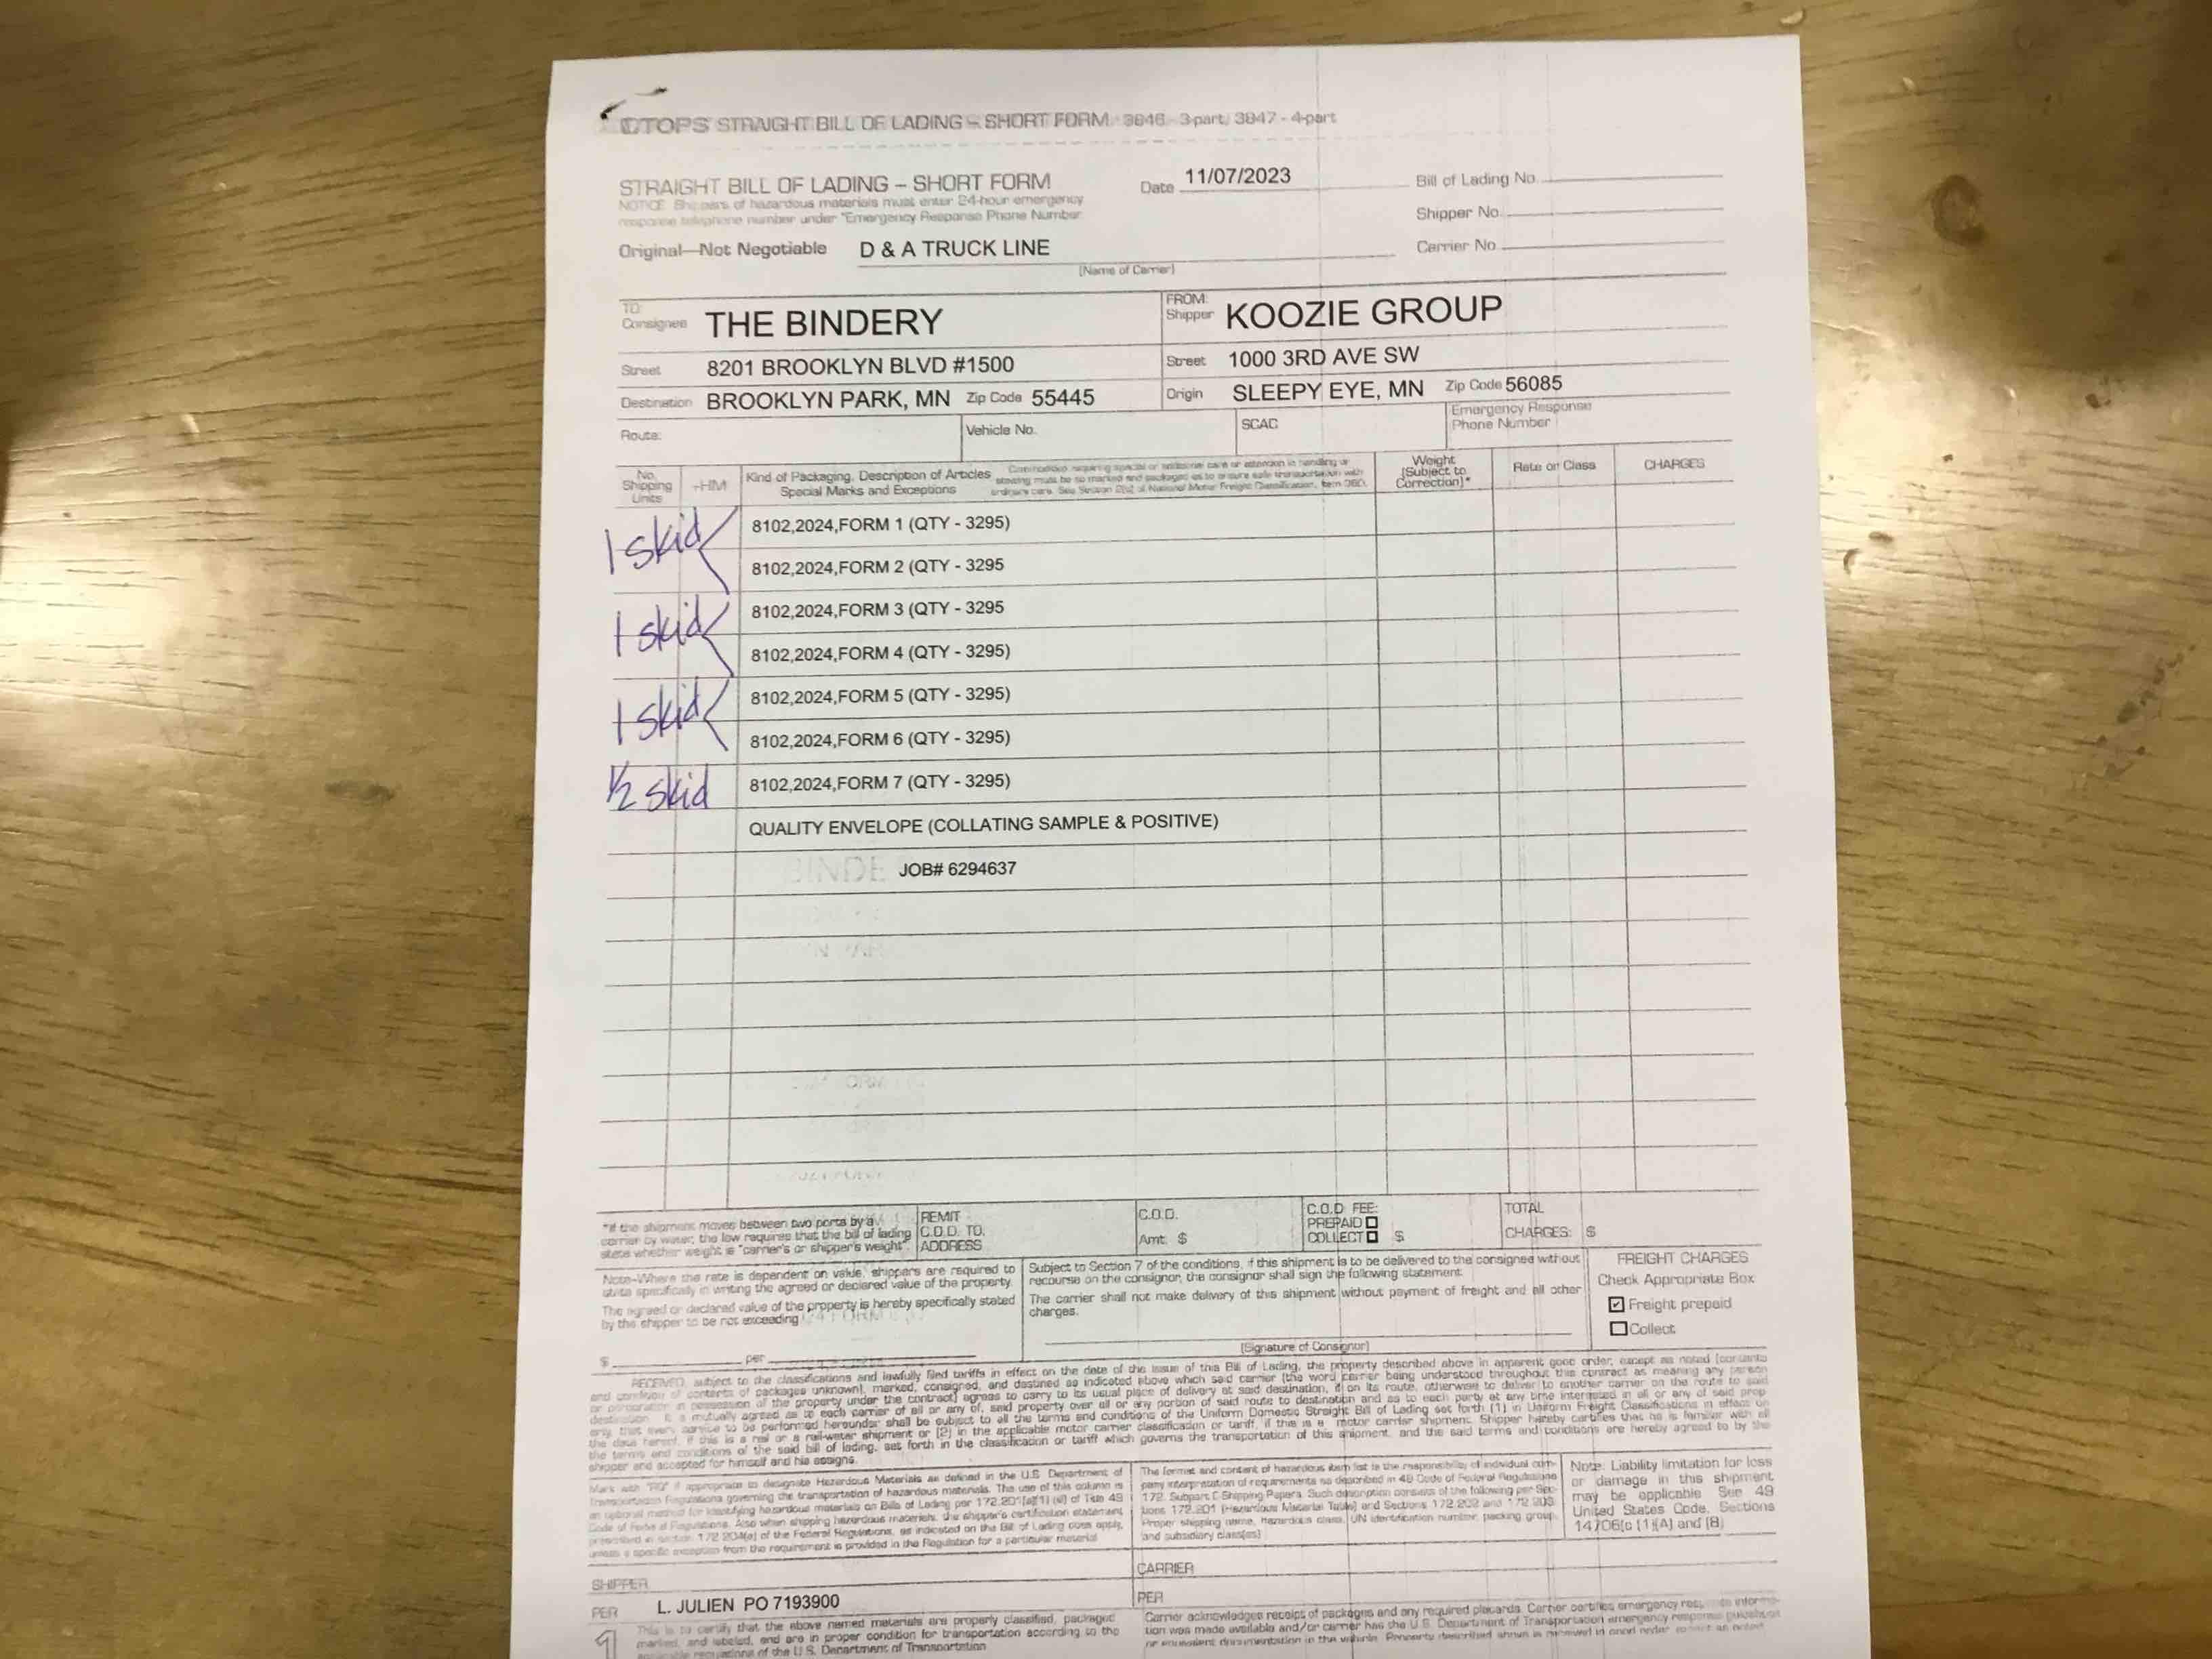 TOPS STRAIGHT BILL OF LADING – SHORT FORM 3846 - 3-part, 3847 - 4-part
STRAIGHT BILL OF LADING – SHORT FORM
Date 11/07/2023
Bill of Lading No.
NOTICE: Shippers of hazardous materials must enter 24-hour emergency
response telephone number under "Emergency Response Phone Number
Shipper No.
Original—Not Negotiable D & A TRUCK LINE
Carrier No.
(Name of Carrier)
TO:
Consignee THE BINDERY
FROM:
Shipper KOOZIE GROUP
Street 8201 BROOKLYN BLVD #1500
Street 1000 3RD AVE SW
Destination BROOKLYN PARK, MN Zip Code 55445
Origin SLEEPY EYE, MN Zip Code 56085
Route:
Vehicle No.
SCAC
Emergency Response
Phone Number
No.
Shipping
Units
HM
Kind of Packaging, Description of Articles
Special Marks and Exceptions
Commodities requiring special or additional care or attention in handling or
stowing must be so marked and packaged as to ensure safe transportation with
ordinary care. See Section 2(e) of National Motor Freight Classification, Item 360.
Weight
(Subject to
Correction)*
Rate or Class
CHARGES
1 skid
8102,2024,FORM 1 (QTY - 3295)
8102,2024,FORM 2 (QTY - 3295
1 skid
8102,2024,FORM 3 (QTY - 3295
8102,2024,FORM 4 (QTY - 3295)
1 skid
8102,2024,FORM 5 (QTY - 3295)
8102,2024,FORM 6 (QTY - 3295)
1/2 skid
8102,2024,FORM 7 (QTY - 3295)
QUALITY ENVELOPE (COLLATING SAMPLE & POSITIVE)
JOB# 6294637
*If the shipment moves between two ports by a
carrier by water, the law requires that the bill of lading
state whether weight is "carrier's or shipper's weight".
REMIT
C.O.D. TO:
ADDRESS
C.O.D.
Amt. $
C.O.D. FEE:
PREPAID
COLLECT $
TOTAL
CHARGES: $
Note-Where the rate is dependent on value, shippers are required to
state specifically in writing the agreed or declared value of the property.
The agreed or declared value of the property is hereby specifically stated
by the shipper to be not exceeding
$ per
Subject to Section 7 of the conditions, if this shipment is to be delivered to the consignee without
recourse on the consignor, the consignor shall sign the following statement:
The carrier shall not make delivery of this shipment without payment of freight and all other
charges.
(Signature of Consignor)
FREIGHT CHARGES
Check Appropriate Box
Freight prepaid
Collect
RECEIVED, subject to the classifications and lawfully filed tariffs in effect on the date of the issue of this Bill of Lading, the property described above in apparent good order, except as noted (contents
and condition of contents of packages unknown), marked, consigned, and destined as indicated above which said carrier (the word carrier being understood throughout this contract as meaning any person
or corporation in possession of the property under the contract) agrees to carry to its usual place of delivery at said destination, if on its route, otherwise to deliver to another carrier on the route to said
destination. It is mutually agreed as to each carrier of all or any of, said property over all or any portion of said route to destination and as to each party at any time interested in all or any of said prop
erty, that every service to be performed hereunder shall be subject to all the terms and conditions of the Uniform Domestic Straight Bill of Lading set forth (1) in Uniform Freight Classifications in effect on
the date hereof, if this is a rail or a rail-water shipment or (2) in the applicable motor carrier classification or tariff, if this is a motor carrier shipment. Shipper hereby certifies that he is familiar with all
the terms and conditions of the said bill of lading, set forth in the classification or tariff which governs the transportation of this shipment, and the said terms and conditions are hereby agreed to by the
shipper and accepted for himself and his assigns.
Mark with "RQ" if appropriate to designate Hazardous Materials as defined in the U.S. Department of
Transportation Regulations governing the transportation of hazardous materials. The use of this column is
an optional method for identifying hazardous materials on Bills of Lading per 172.201(a)(1) (iii) of Title 49
Code of Federal Regulations. Also when shipping hazardous materials, the shipper's certification statement
prescribed in section 172.204(a) of the Federal Regulations, as indicated on the Bill of Lading does apply,
unless a specific exception from the requirement is provided in the Regulation for a particular material
The format and content of hazardous item list is the responsibility of individual com-
pany interpretation of requirements as described in 49 Code of Federal Regulations
172, Subpart C-Shipping Papers. Such description consists of the following per Sec-
tions 172.201 (Hazardous Material Table) and Sections 172.202 and 172.203:
Proper shipping name, hazardous class, UN identification number, packing group,
and subsidiary class(es)
Note: Liability limitation for loss
or damage in this shipment
may be applicable. See 49
United States Code, Sections
14706(c)(1)(A) and (B)
SHIPPER
CARRIER
PER L. JULIEN PO 7193900
PER
1
This is to certify that the above named materials are properly classified, packaged
marked, and labeled, and are in proper condition for transportation according to the
applicable regulations of the U.S. Department of Transportation
Carrier acknowledges receipt of packages and any required placards. Carrier certifies emergency response informa-
tion was made available and/or carrier has the U.S. Department of Transportation emergency response guidebook
or equivalent documentation in the vehicle. Property described above is received in good order except as noted